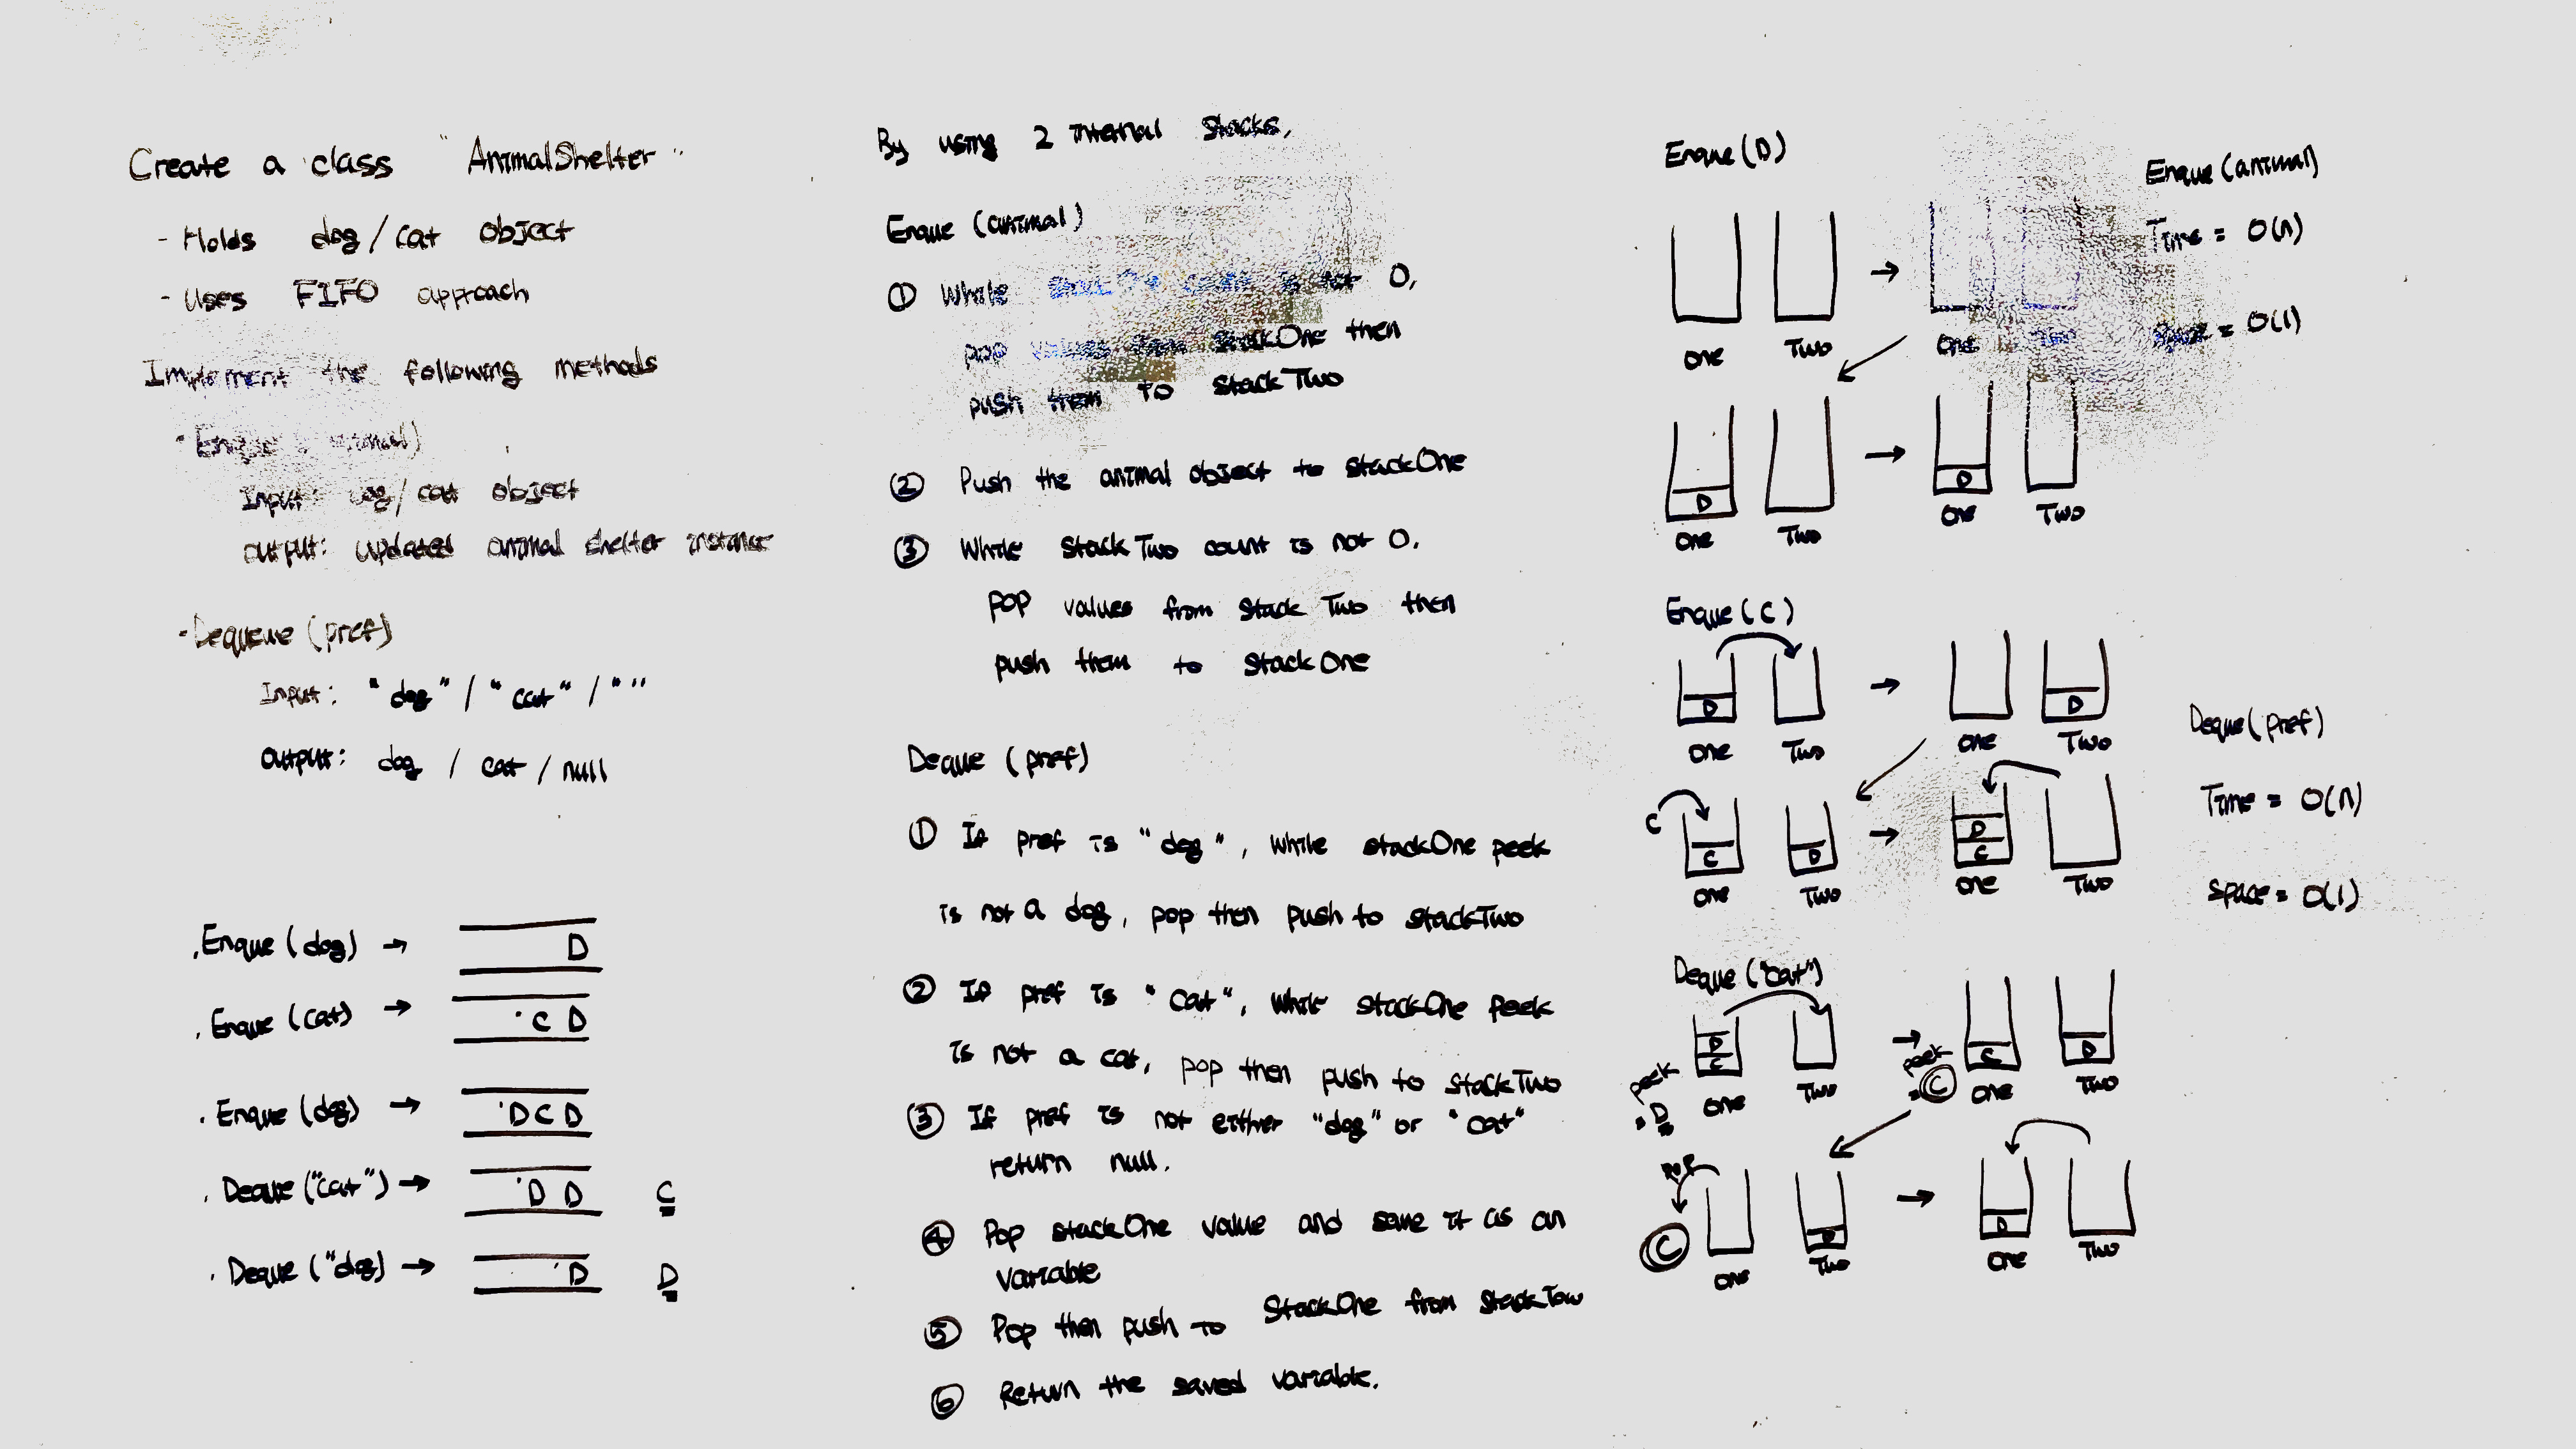 Create a class "AnimalShelter"
- Holds dog/cat object
- Uses FIFO approach
Implement the following methods
Input: dog/cat object
output: updated animal shelter instance
- Dequeue (pref)
Input: "dog" / "cat" / ""
output: dog / cat / null
. Enque (dog) →
D
. Enque (cat) →
C D
. Enque (dog) →
D C D
. Deque ("cat") →
D D
C
. Deque ("dog) →
D
D
By using 2 internal stacks,
Enque (animal)
① While is not 0,
pop values from StackOne then
push them to StackTwo
② Push the animal object to stackOne
③ While Stack Two count is not 0,
pop values from Stack Two then
push them to Stack One
Deque (pref)
① If pref is "dog", while stackOne peek
is not a dog, pop then push to stackTwo
② If pref is "cat", while stackOne peek
is not a cat, pop then push to stackTwo
③ If pref is not either "dog" or "cat"
return null.
④ Pop stackOne value and save it as an
variable
⑤ Pop then push to StackOne from StackTow
⑥ Return the saved variable.
Enque (D)
→
one Two
One Two
D → D
One Two
One Two
Enque (C)
D → D
One Two
One Two
C
C D → D
C
One Two
One Two
Deque ("cat")
D
C → C D
peek
= D
One Two
peek
= C
One Two
POP
C
D → D
One Two
One Two
Enque (animal)
Time = O(n)
Space = O(1)
Deque (pref)
Time = O(n)
Space = O(1)